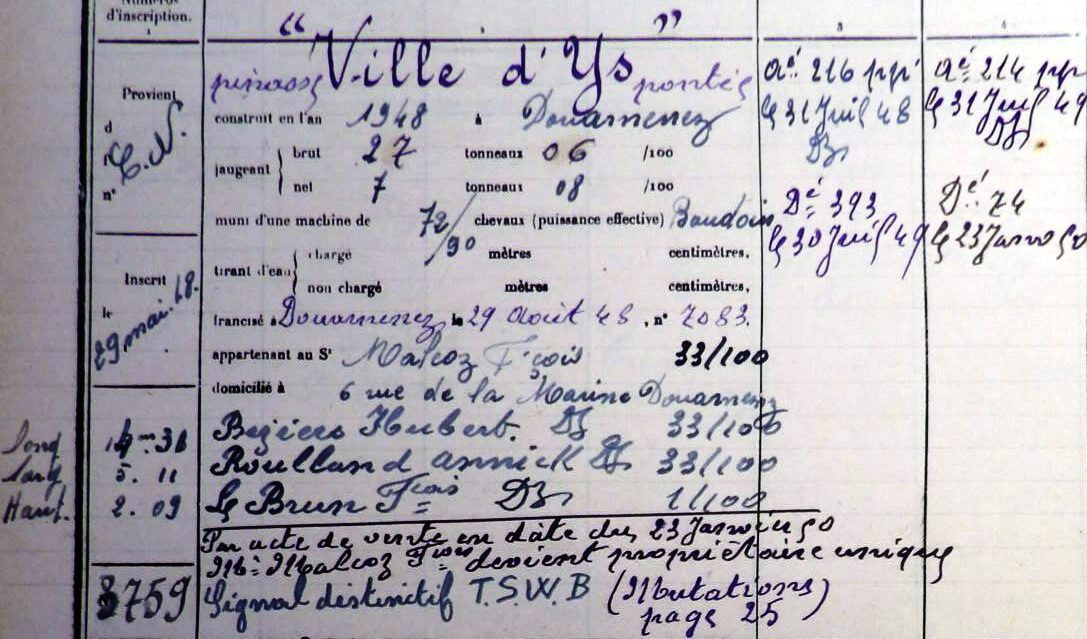 Numéros
d'inscription.
"Ville d'Ys"
pinasse pontée
Provient
d
C.N.
n°
construit en l'an 1948 à Douarnenez
jaugeant
brut 27 tonneaux 06 /100
net 7 tonneaux 08 /100
muni d'une machine de 72/90 chevaux (puissance effective) Baudoin
tirant d'eau
chargé mètres centimètres,
non chargé mètres centimètres,
Inscrit
le
29 mai 48.
francisé à Douarnenez, le 29 Août 48, n° 7083.
appartenant au Sr Malcoz Fçois 33/100
domicilié à 6 rue de la Marine Douarnenez
Beziers Hubert. DZ 33/100
Roulland Annick DZ 33/100
Le Brun Fçois DZ 1/100
Long 14m 36
Larg 5. 11
Haut. 2. 09
Par acte de vente en date du 23 Janvier 50
Mr Malcoz Fçois devient propriétaire unique
3759
Signal distinctif T.S.W.B (Mutations
page 25)
Aé 216
le 31 Juil 48
DZ
Dé 393
le 30 Juil 49
Aé 214
le 31 Juil 49
DZ
Dé 74
le 23 Janv 50